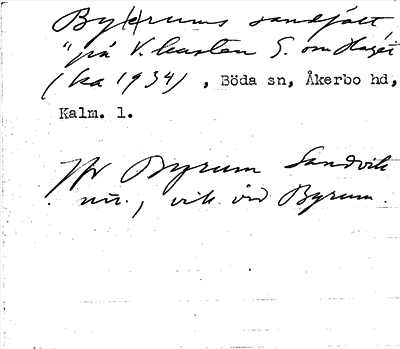 Byrums sandfält
"på V. kusten S. om Haget
(ka 1934), Böda sn, Åkerbo hd,
Kalm. l.
Jfr Byrum Sandvik
nu., vik vid Byrum.